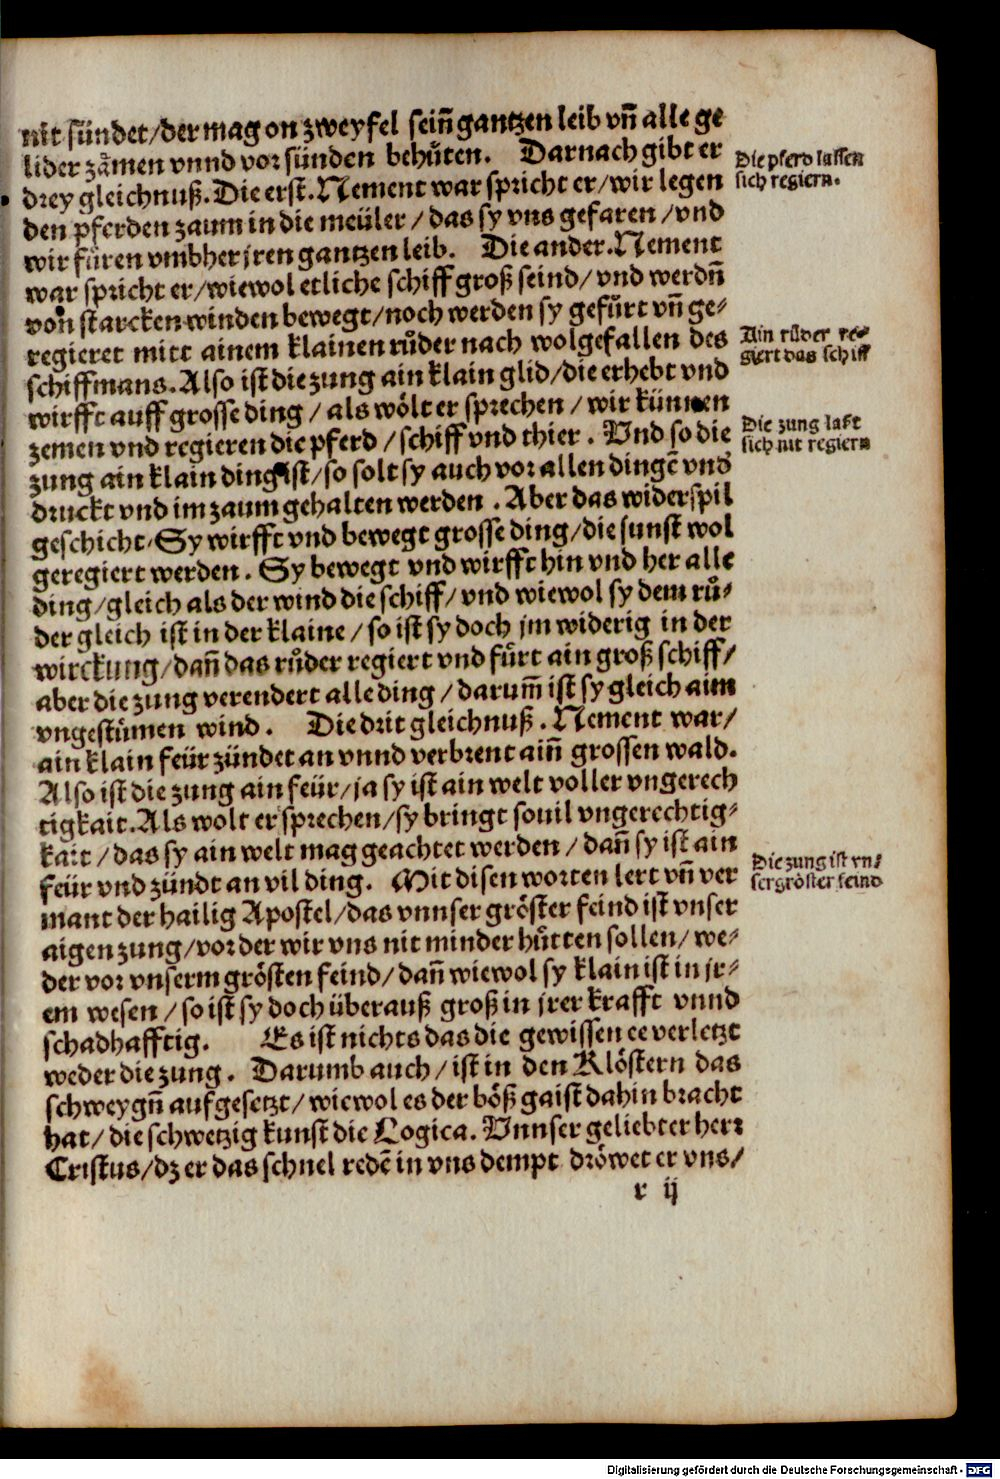 nit sündet/der mag on zweyfel sein̄ gantzen leib vn̄ alle ge
lider zämen vnnd vor sünden behůten. Darnach gibt er
drey gleichnuß. Die erst. Nement war spricht er/wir legen
den pferden zaum in die meüler/das sy vns gefaren/vnd
wir füren vmbher jren gantzen leib. Die ander. Nement
war spricht er/wiewol etliche schiff groß seind/vnd werdn̄
von starcken winden bewegt/noch werden sy gefůrt vn̄ ge-
regieret mitt ainem klainen růder nach wolgefallen des
schiffmans. Also ist die zung ain klain glid/die erhebt vnd
wirfft auff grosse ding/als wölt er sprechen/wir künnen
zemen vnd regieren die pferd/schiff vnd thier. Vnd so die
zung ain klain ding ist/so solt sy auch vor allen dingē vnd
druckt vnd im zaum gehalten werden. Aber das widerspil
geschicht. Sy wirfft vnd bewegt grosse ding/die sunst wol
geregiert werden. Sy bewegt vnd wirfft hin vnd her alle
ding/gleich als der wind die schiff/vnd wiewol sy dem rů-
der gleich ist in der klaine/so ist sy doch jm widerig in der
wirckung/dan̄ das růder regiert vnd fůrt ain groß schiff/
aber die zung verendert alle ding/darum̄ ist sy gleich aim
vngestůmen wind. Die drit gleichnuß. Nement war/
ain klain feür zündet an vnnd verbrent ain̄ grossen wald.
Also ist die zung ain feür/ja sy ist ain welt voller vngerech
tigkait. Als wolt er sprechen/sy bringt souil vngerechtig-
kait/das sy ain welt mag geachtet werden/dan̄ sy ist ain
feür vnd zündt an vil ding. Mit disen worten lert vn̄ ver
mant der hailig Apostel/das vnnser gröster feind ist vnser
aigen zung/vor der wir vns nit minder hůtten sollen/we-
der vor vnserm grösten feind/dan̄ wiewol sy klain ist in jr-
em wesen/so ist sy doch überauß groß in jrer krafft vnnd
schadhafftig. Es ist nichts das die gewissen ee verletzt
weder die zung. Darumb auch/ist in den Klöstern das
schweygn̄ aufgesetzt/wiewol es der böß gaist dahin bracht
hat/die schwetzig kunst die Logica. Vnnser geliebter herr
Cristus/dz er das schnel redē in vns dempt dröwet er vns/
r ij
Die pferd lassen
sich regiern.
Ain růder re-
giert das schiff
Die zung laßt
sich nit regiern
Die zung ist vn-
ser gröster feind
Digitalisierung gefördert durch die Deutsche Forschungsgemeinschaft - DFG